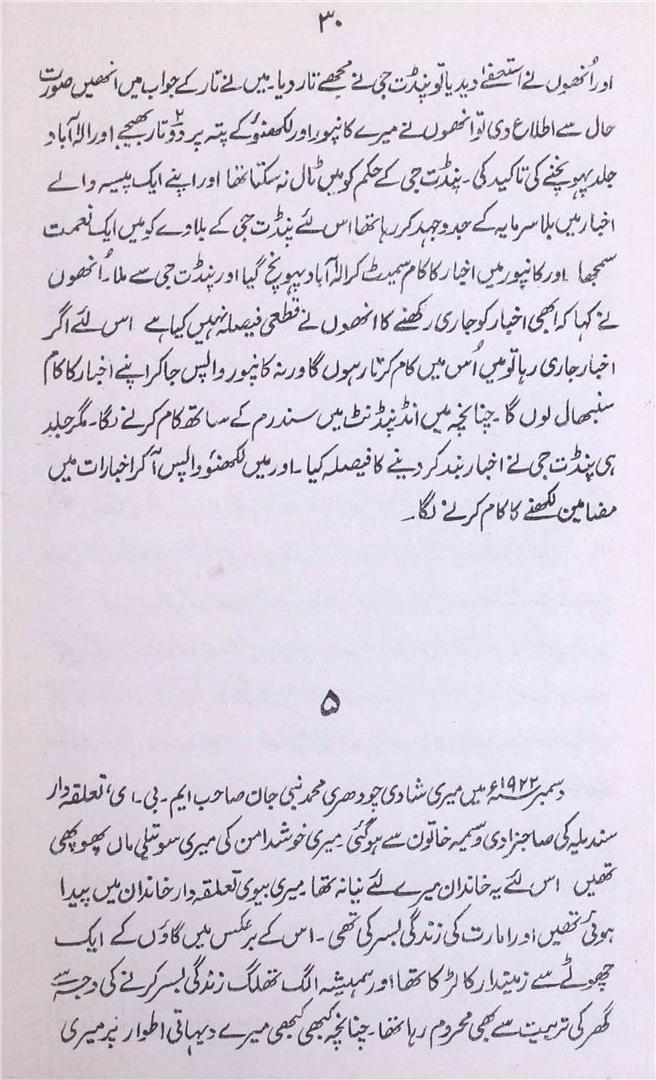 ۳۰
اور اُنھوں نے استعفےٰ دیدیا تو پنڈت جی نے مجھے تار دیا۔ میں نے تار کے جواب میں انھیں صورت
حال سے اطلاع دی تو انھوں نے میرے کانپور اور لکھنؤ کے پتہ پر دو۲ تار بھیجے اور الہ آباد
جلد پہونچنے کی تاکید کی۔ پنڈت جی کے حکم کو میں ٹال نہ سکتا تھا اور اپنے ایک پیسہ والے
اخبار میں بلا سرمایہ کے جدوجہد کر رہا تھا اس لئے پنڈت جی کے بلاوے کو میں ایک نعمت
سمجھا اور کانپور میں اخبار کا کام سمیٹ کر الہ آباد پہونچ گیا اور پنڈت جی سے ملا۔ اُنھوں
نے کہا کہ ابھی اخبار کو جاری رکھنے کا انھوں نے قطعی فیصلہ نہیں کیا ہے اس لئے اگر
اخبار جاری رہا تو میں اُس میں کام کرتا رہوں گا ورنہ کانپور واپس جا کر اپنے اخبار کا کام
سنبھال لوں گا۔ چنانچہ میں انڈپنڈنٹ میں سندرم کے ساتھ کام کرنے لگا۔ مگر جلد
ہی پنڈت جی نے اخبار بند کر دینے کا فیصلہ کیا۔ اور میں لکھنؤ واپس آ کر اخبارات میں
مضامین لکھنے کا کام کرنے لگا۔
۵
دسمبر ۱۹۲۲ء میں میری شادی چودھری محمد نبی جان صاحب ایم۔ بی۔ ای، تعلقہ دار
سندیلہ کی صاحبزادی وسیمہ خاتون سے ہو گئی۔ میری خوشدامن کی میری سوتیلی ماں پھوپھی
تھیں اس لئے یہ خاندان میرے لئے نیا نہ تھا۔ میری بیوی تعلقہ دار خاندان میں پیدا
ہوئی تھیں اور امارت کی زندگی بسر کی تھی۔ اس کے برعکس میں گاؤں کے ایک
چھوٹے سے زمیندار کا لڑکا تھا اور ہمیشہ الگ تھلگ زندگی بسر کرنے کی وجہ سے
گھر کی تربیت سے بھی محروم رہا تھا۔ چنانچہ کبھی کبھی میرے دیہاتی اطوار پر میری